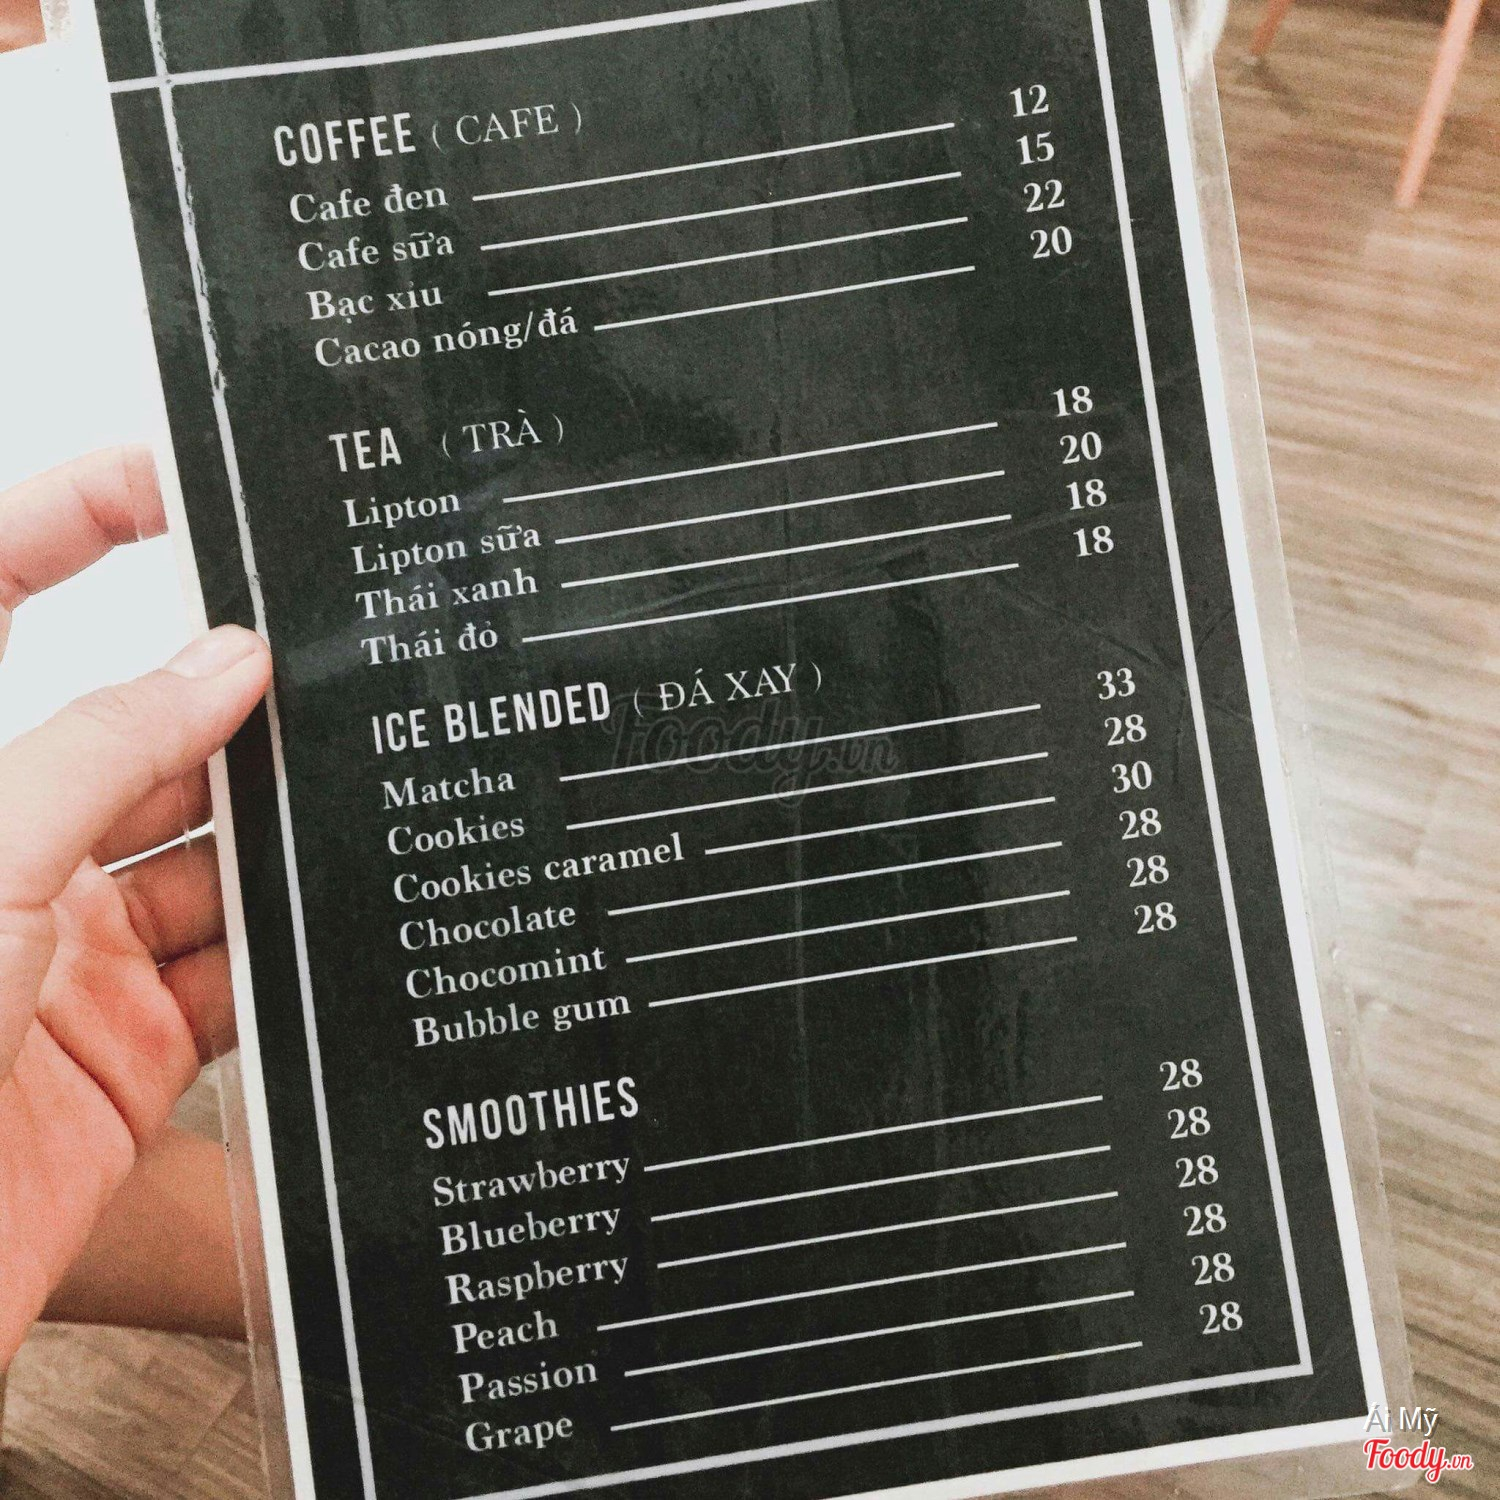 COFFEE ( CAFE )
Cafe đen 12
Cafe sữa 15
Bạc xỉu 22
Cacao nóng/đá 20
TEA ( TRÀ )
Lipton 18
Lipton sữa 20
Thái xanh 18
Thái đỏ 18
ICE BLENDED ( ĐÁ XAY )
Matcha 33
Cookies 28
Cookies caramel 30
Chocolate 28
Chocomint 28
Bubble gum 28
SMOOTHIES
Strawberry 28
Blueberry 28
Raspberry 28
Peach 28
Passion 28
Grape 28
Foody.vn
Ái Mỹ
Foody.vn